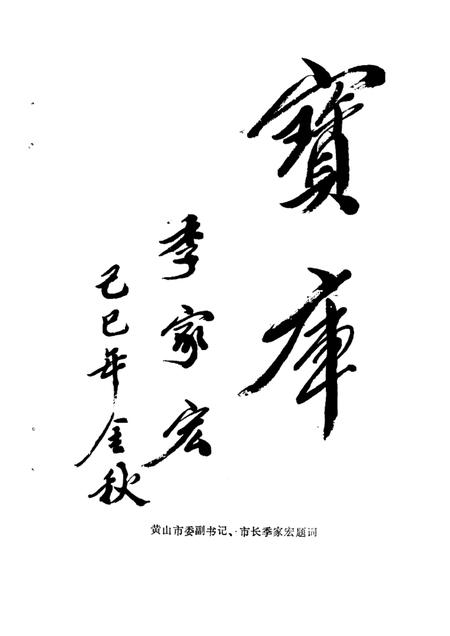 寶庫
季家宏
己巳年金秋
黄山市委副书记、市长季家宏题词